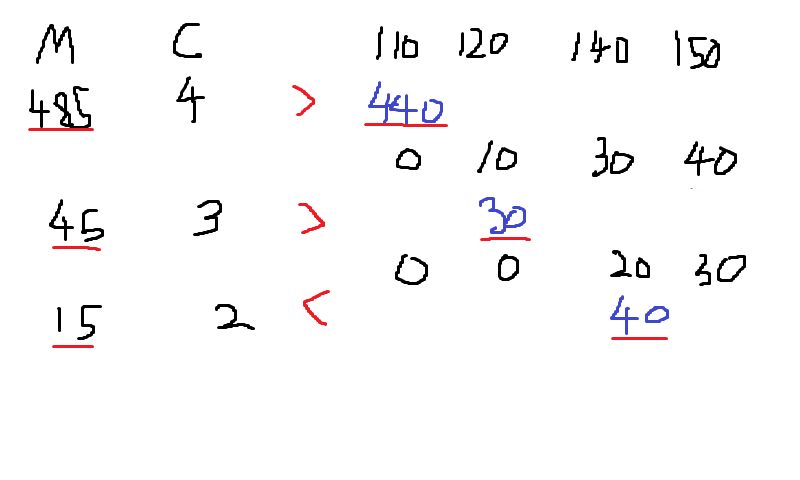 M C 110 120 140 150
485 4 > 440
0 10 30 40
45 3 > 30
0 0 20 30
15 2 < 40